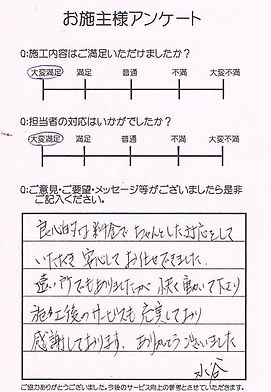 お施主様アンケート
Q:施工内容はご満足いただけましたか?
大変満足 満足 普通 不満 大変不満
Q:担当者の対応はいかがでしたか?
大変満足 満足 普通 不満 大変不満
Q:ご意見・ご要望・メッセージ等がございましたら是非
ご記入ください。
良心的な料金でちゃんとした対応をして
いただき安心してお任せできました。
遠い所でもありましたが快く直して下さり
施工後のサービスも充実しており
感謝しております。ありがとうございました
水谷
ご協力ありがとうございました。今後のサービス向上の参考とさせていただきます。